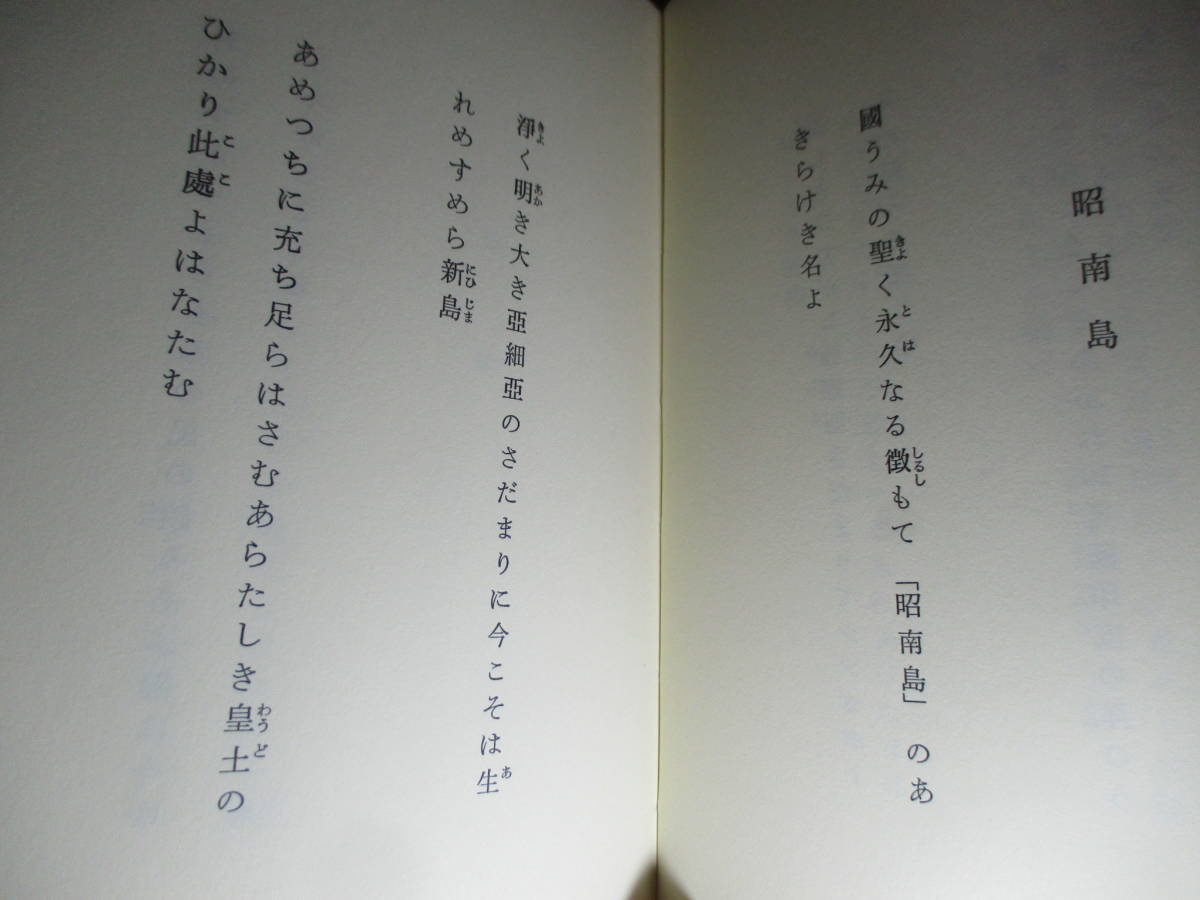 昭南島
國うみの聖く永久なる徴もて「昭南島」のあ
きらけき名よ
淨く明き大き亞細亞のさだまりに今こそは生
れめすめら新島
あめつちに充ち足らはさむあらたしき皇土の
ひかり此處よはなたむ